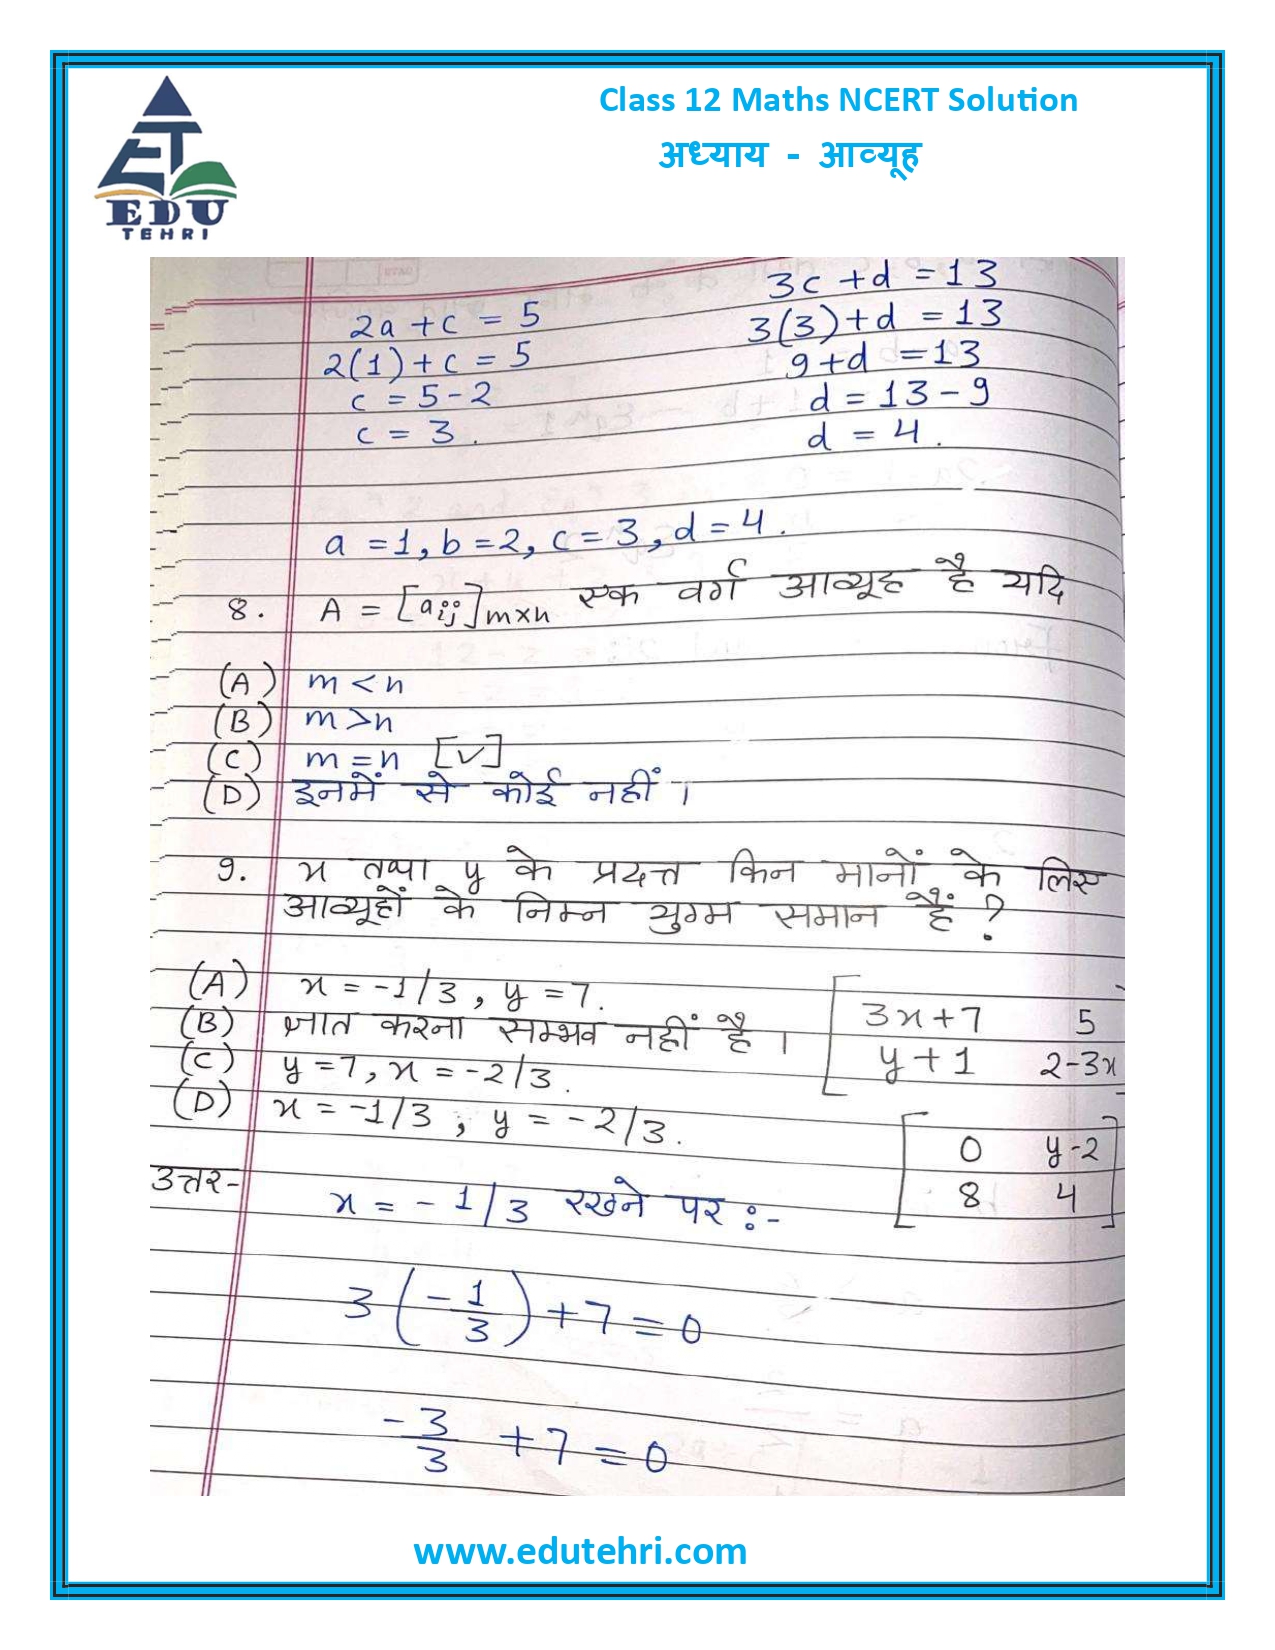 Class 12 Maths NCERT Solution
अध्याय - आव्यूह
EDU
TEHRI
2a + c = 5
2(1) + c = 5
c = 5 - 2
c = 3.
3c + d = 13
3(3) + d = 13
9 + d = 13
d = 13 - 9
d = 4.
a = 1, b = 2, c = 3, d = 4.
8. A = [aij]m×n एक वर्ग आव्यूह है यदि
(A) m < n
(B) m > n
(C) m = n [✓]
(D) इनमें से कोई नहीं ।
9. x तथा y के प्रदत्त किन मानों के लिए
आव्यूहों के निम्न युग्म समान हैं ?
(A) x = -1/3, y = 7.
(B) ज्ञात करना सम्भव नहीं है ।
(C) y = 7, x = -2/3.
(D) x = -1/3, y = -2/3.
[3x + 7 5
y + 1 2-3x
[0 y-2
8 4]
उत्तर- x = - 1/3 रखने पर :-
3(-1/3) + 7 = 0
-3/3 + 7 = 0
www.edutehri.com